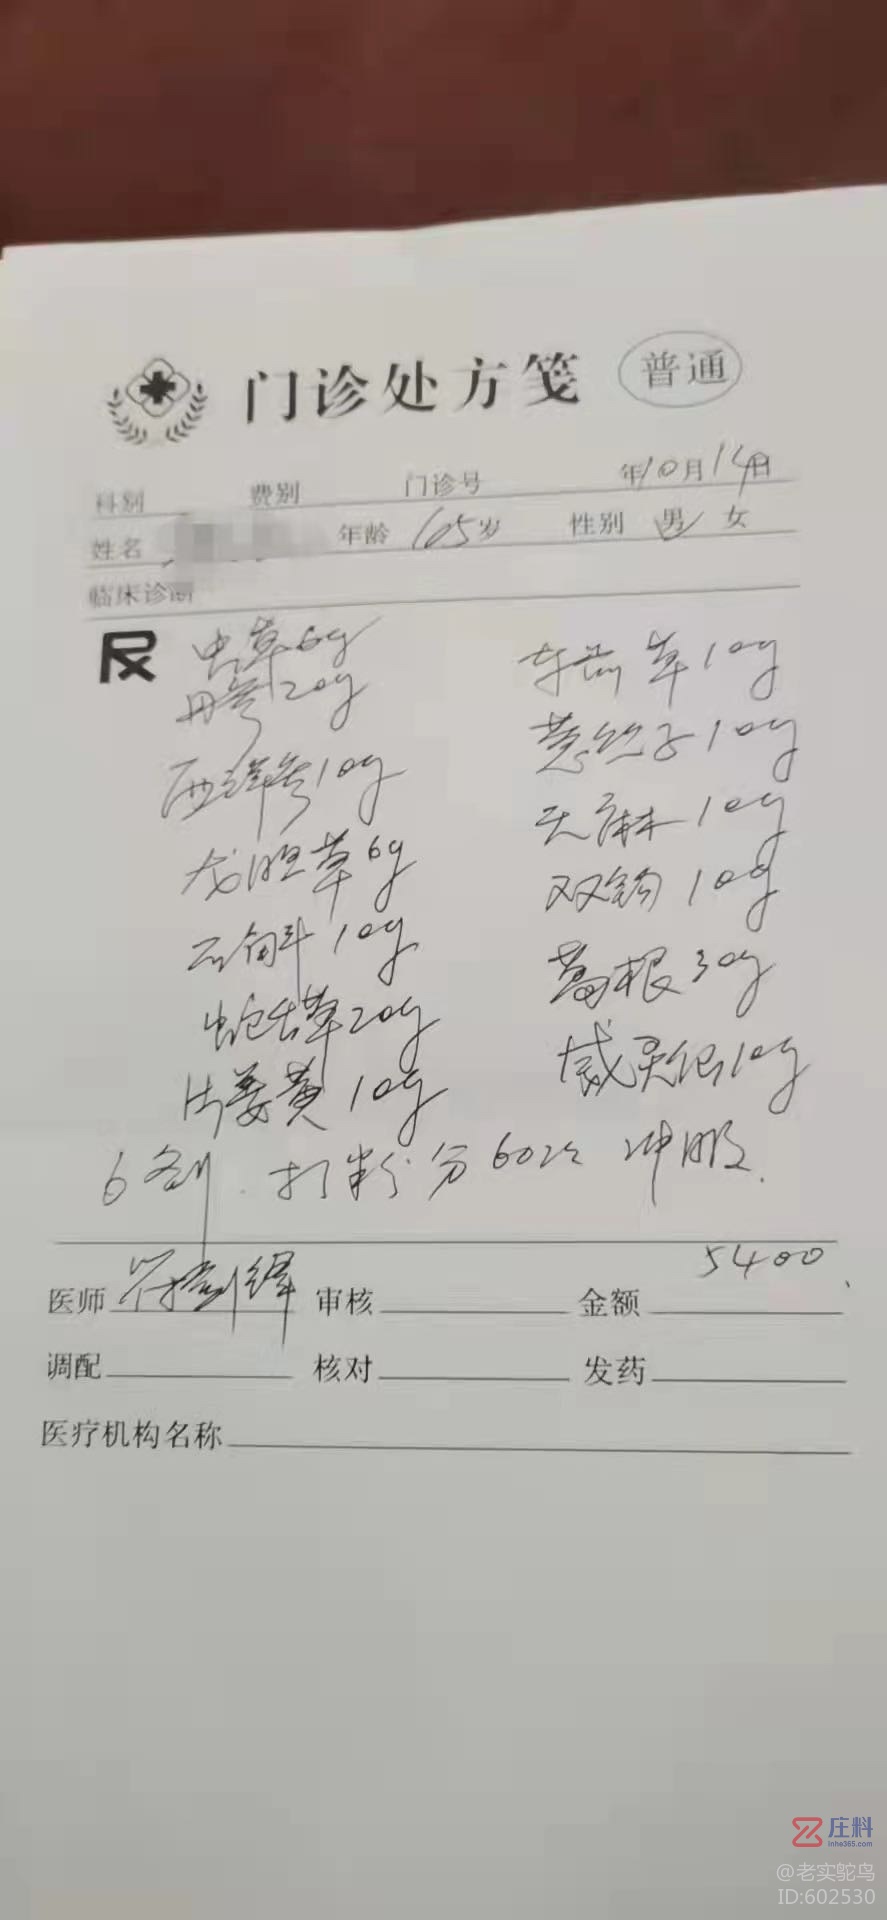 门诊处方笺 普通
科别 费别 门诊号 年10月14日
姓名 年龄 65岁 性别 男 女
临床诊断
虫草6g 车前草10g
丹参20g 菟丝子10g
西洋参10g 天麻10g
龙胆草6g 双钩10g
石斛10g 葛根30g
蛇舌草20g 威灵仙10g
片姜黄10g
6剂.打粉分60次 冲服.
医师 审核 金额 5400
调配 核对 发药
医疗机构名称
庄料
inhe365.com
@老实鸵鸟
ID:602530